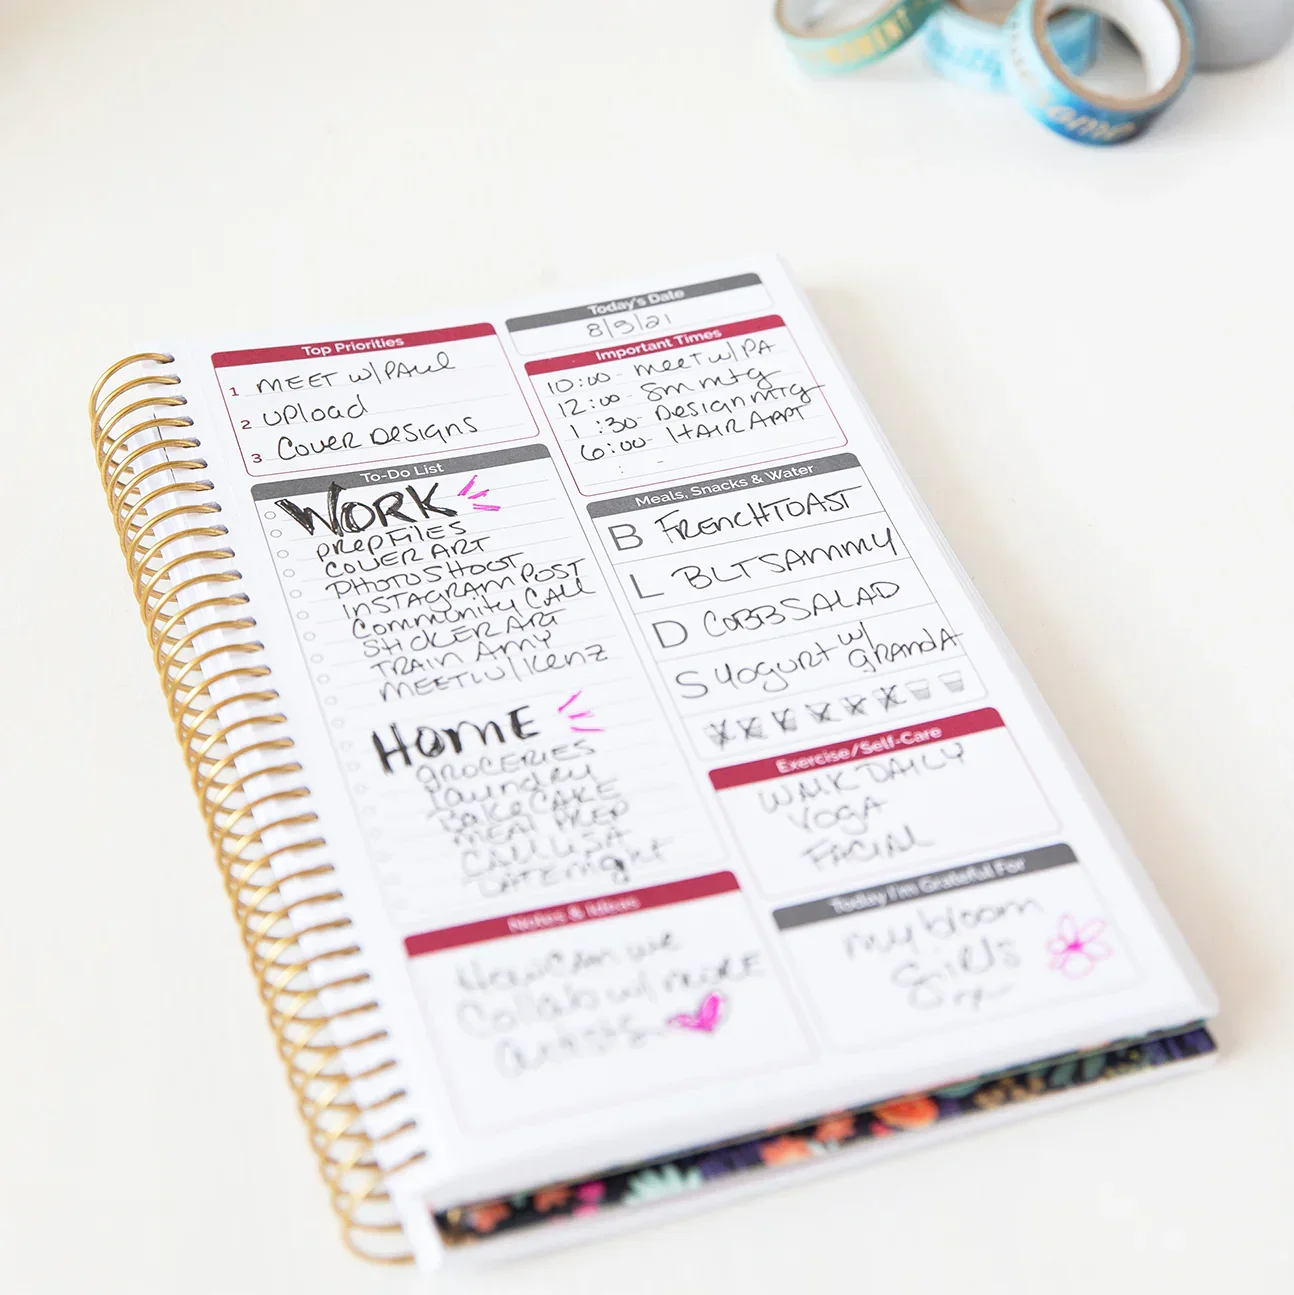 Today's Date
8/3/21
Top Priorities
1 MEET w/PAUL
2 UPLOAD
3 COVER DESIGNS
Important Times
10:00 - MEET W/ PA
12:00 - Sm mtg
1:30 - Design mtg
6:00 - HAIR APPT
: -
To-Do List
WORK
PREP FILES
COVER ART
PHOTOSHOOT
INSTAGRAM POST
Community CALL
STICKER ART
TRAIN Amy
MEET W/ Kenz
HOME
GROCERIES
Laundry
BAKE CAKE
MEAL PREP
CALL LISA
DATE night
Meals, Snacks & Water
B FRENCH TOAST
L BLT SAMMY
D COBB SALAD
S Yogurt w/
GRANOLA
Exercise/Self-Care
WALK DAILY
YOGA
FACIAL
Notes & Ideas
How can we
Collab w/ more
artists
Today I'm Grateful For
my bloom
girls